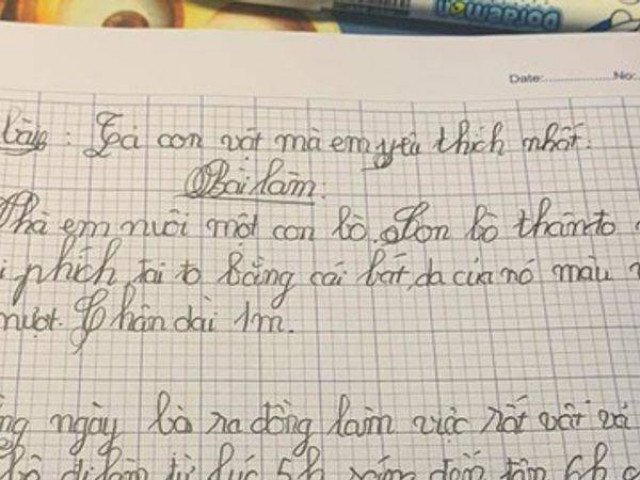 Date: No:
bài: Tả con vật mà em yêu thích nhất.
Bài làm:
Nhà em nuôi một con bò. Con bò thân to
phích, tai to bằng cái bát, da của nó màu
mượt. Chân dài 1m.
ngày bò ra đồng làm việc rất vất vả
bò đi làm từ lúc 5h sáng đến tận 6h